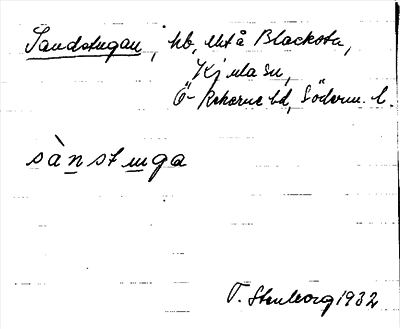 Sandstugan, hb, utå Blacksta,
Kjula sn,
Ö-Rekarne hd, Söderm. l.
sànstuga
T. Stenborg 1932